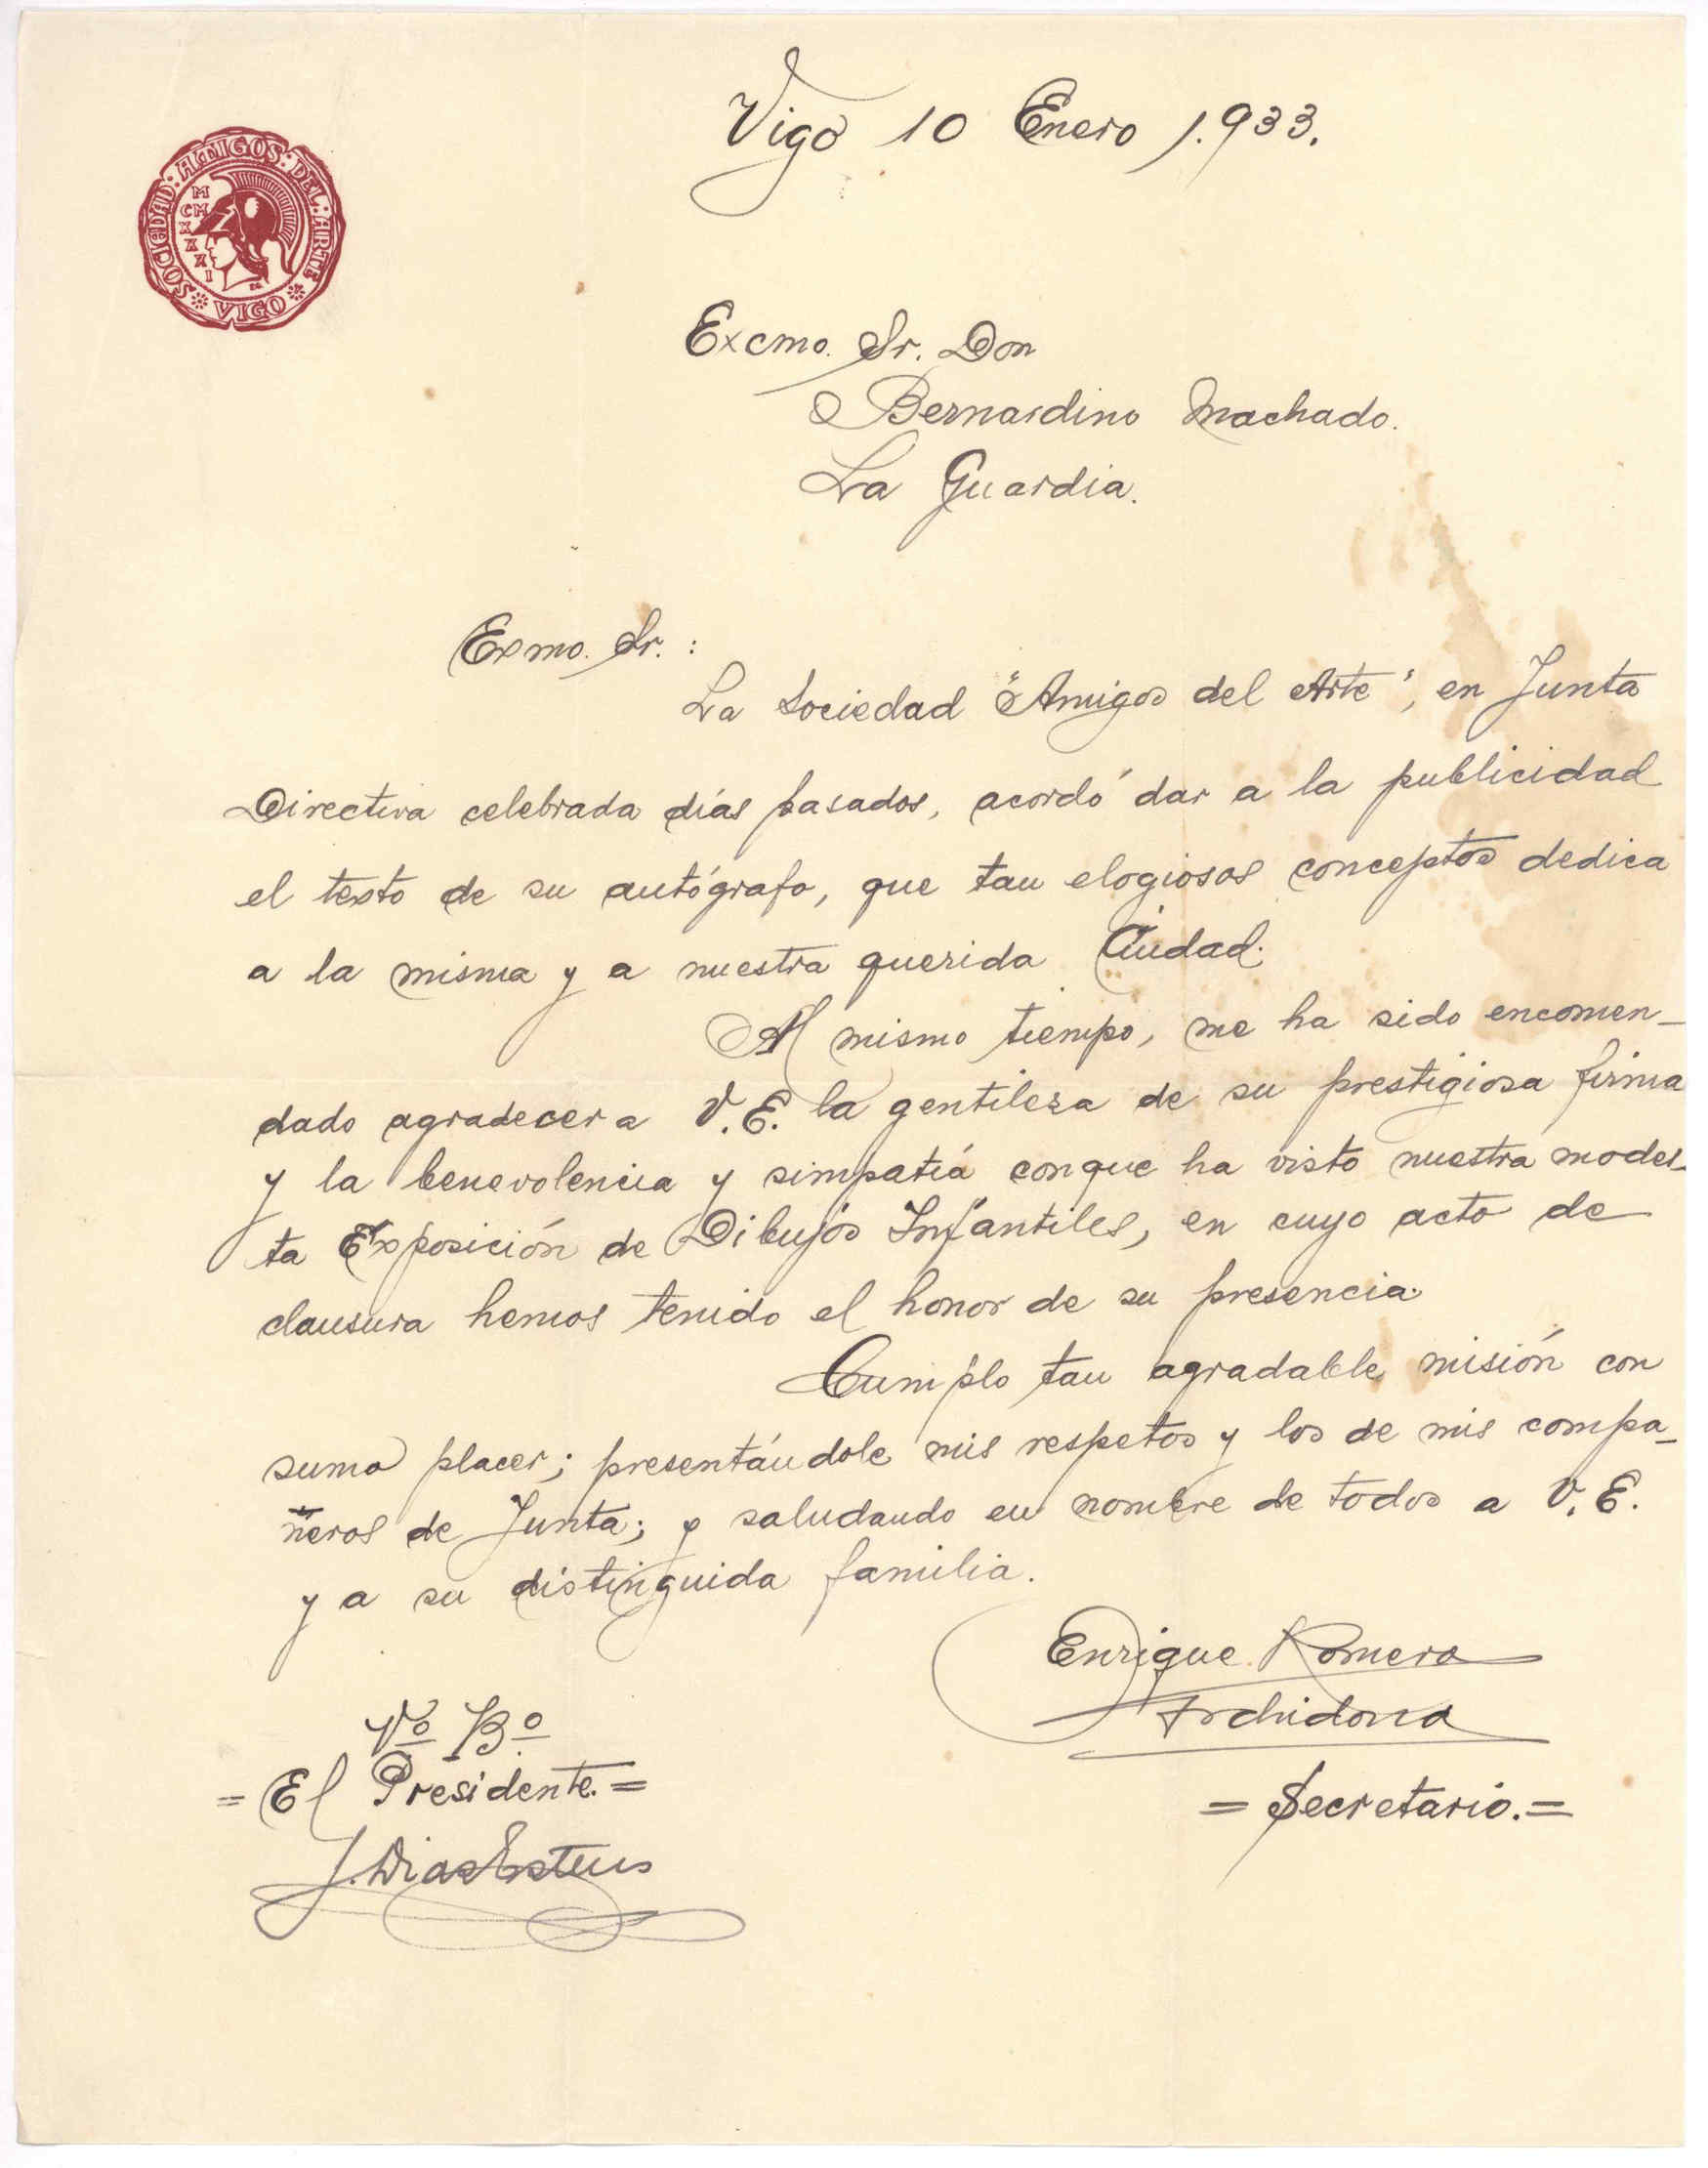 Vigo 10 Enero 1.933.
SOCIEDAD: AMIGOS: DEL: ARTE
VIGO
M
CM
X
X
X
I
Excmo. Sr. Don
Bernardino Machado.
La Guardia.
Exmo. Sr. :
La Sociedad "Amigos del Arte", en Junta
Directiva celebrada días pasados, acordó dar a la publicidad
el texto de su autógrafo, que tan elogiosos conceptos dedica
a la misma y a nuestra querida Ciudad.
Al mismo tiempo, me ha sido encomen-
dado agradecer a V.E. la gentileza de su prestigiosa firma
y la benevolencia y simpatía conque ha visto nuestra modes-
ta Exposición de Dibujos Infantiles, en cuyo acto de
clausura hemos tenido el honor de su presencia.
Cumplo tan agradable misión con
sumo placer; presentándole mis respetos y los de mis compa-
ñeros de Junta; y saludando en nombre de todos a V.E.
y a su distinguida familia.
Enrique Romero
Archidona
= Secretario. =
Vº Bº
= El Presidente. =
J. Dias